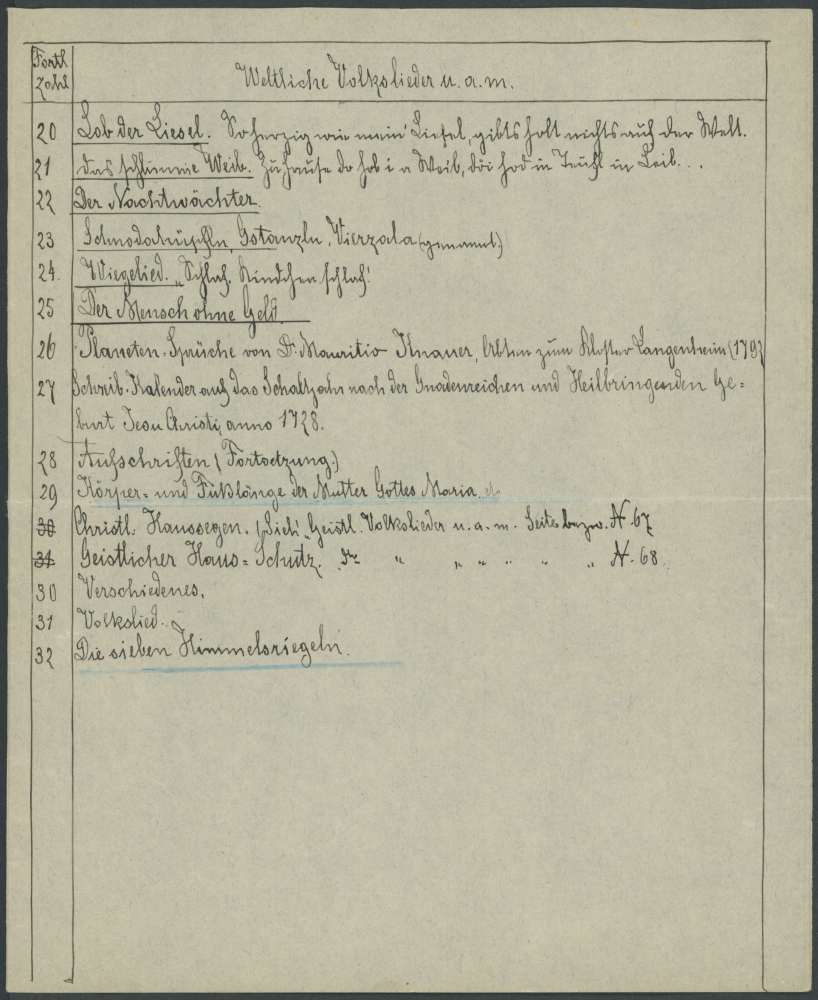 Fortl. Zahl
Weltliche Volkslieder u. a. m.
20 Lob der Liesel. So herzig wie mein Liesel, gibts holt nichts auf der Welt.
21 Das schlimme Weib. Zu hause do hob i a Weib, döi hod in Teufl in Leib...
22 Der Nachtwächter.
23 Schnodahüpfln, Gstanzln, Vierzala (genannt)
24. Wiegelied. "Schlaf, Kindchen schlaf!
25 Der Mensch ohne Geld.
26 Planeten-Sprüche von Dr. Mauritio Knauer, Abten zum Kloster Langenheim (179
27 Schreib-Kalender auf das Schaltjahr nach der Gnadenreichen und Heilbringenden Ge=
burt Jesu Christi, anno 1728.
28 Aufschriften (Fortsetzung.)
29 Körper= und Fußlänge der Mutter Gottes Maria
30 Christl. Haussegen. (Sieh' Geistl. Volkslieder u. a. m. Seite bezw. N. 67
31 Geistlicher Haus=Schutz. " " " " " " N. 68.
30 Verschiedenes.
31 Volkslied.
32 Die sieben Himmelsriegeln.